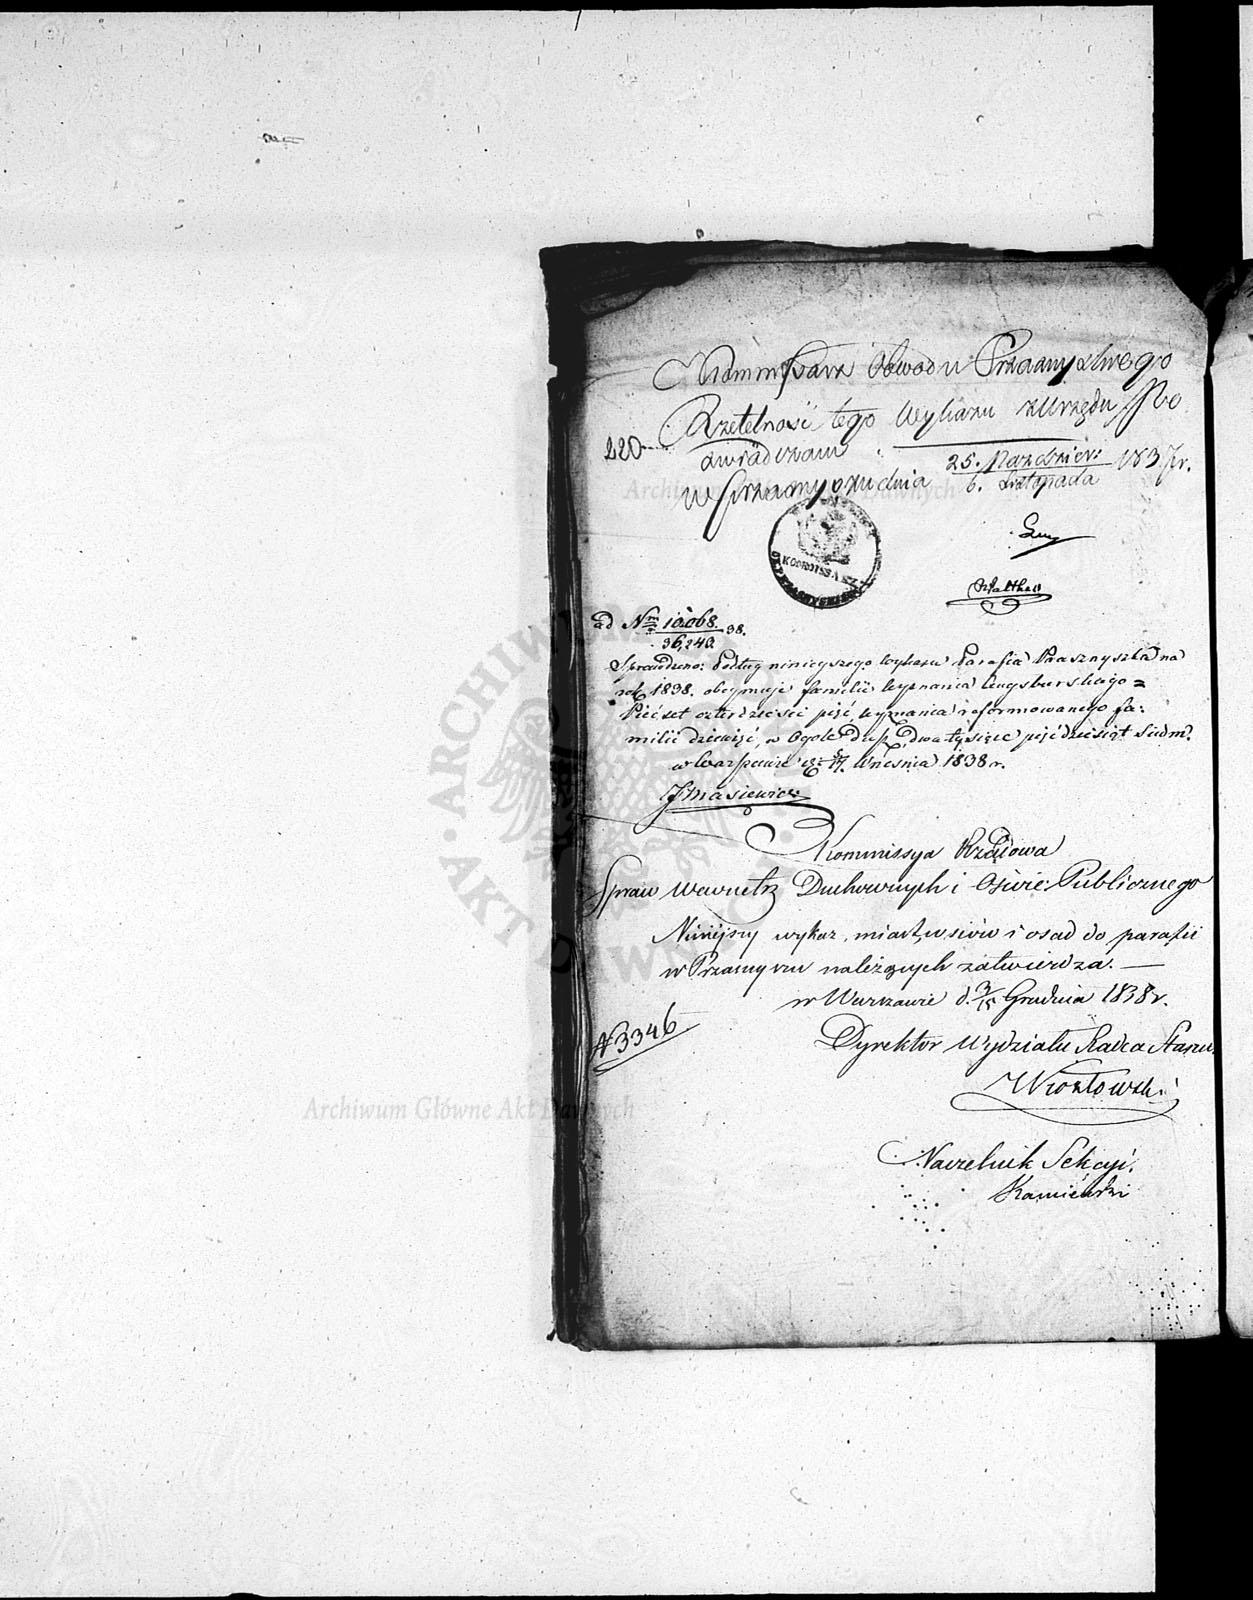 Kommissarz Obwodu Przasnyskiego
Rzetelność tego Wykazu z Urzędu Po
220
zwiadczam
w Przasnyszu dnia 25. Pazdzier: / 6. Listopada 1837 r.
KOMMISSARZ
Walther
ad Nrm 10068. / 36,243. 38.
Sprawdzono: Podług ninieyszego wykazu Parafia Praasnyszka na
rok 1838. obeymuje familii wyznania Augsburskiego=
Pięćset czterdzieści pięć, wyznania reformowanego fa:
milii dziewięć, w Ogóle dusz dwa tysiące pięćdziesiąt siedm.
w Warszawie d. 5/17. Września 1838 r.
Kommissya Rządowa
Spraw Wewnetrz Duchownych i Oświe: Publicznego
Niniejszy wykaz, miast, wsiów i osad do parafii
w Przasnyszu należących zatwierdza. —
w Warszawie d. 3/15 Grudnia 1838 r.
N 3346
Dyrektor Wydziału Radca Stanu
Naczelnik Sekcyi.
Kamieński
ARCHIWUM GŁÓWNE AKT DAWNYCH
Archiwum Główne Akt Dawnych